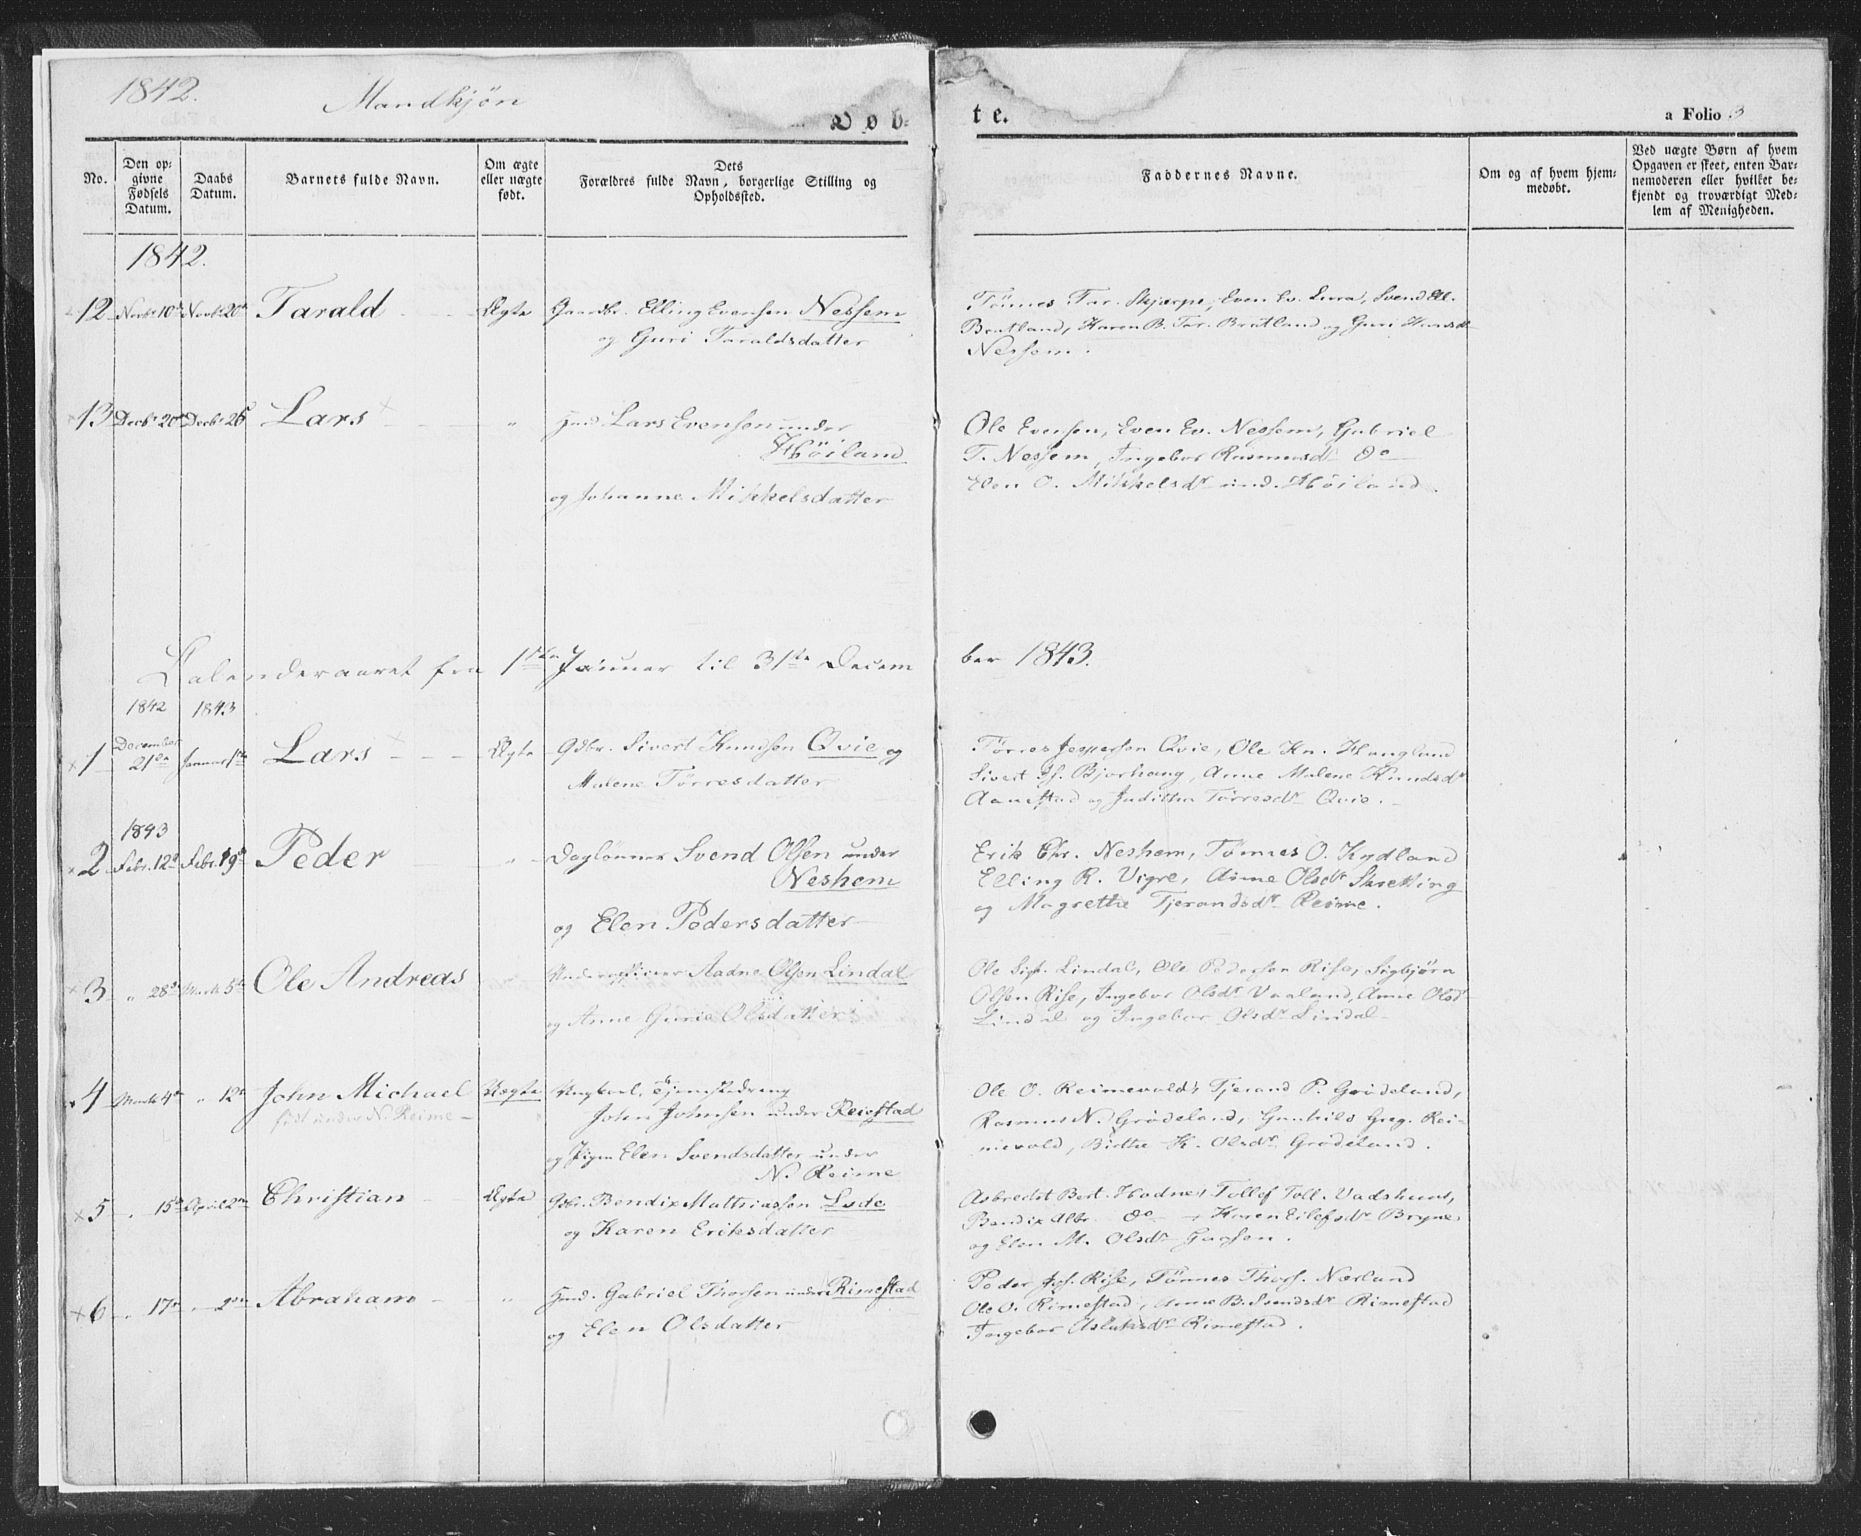 1842.
Mandkjøn
Døb-
te.
a Folio 3
No.
Den op-
givne
Fødsels
Datum.
Daabs
Datum.
Barnets fulde Navn.
Om ægte
eller uægte
født.
Dets
Forældres fulde Navn, borgerlige Stilling og
Opholdssted.
Faddernes Navne.
Om og af hvem hjem-
medøbt.
Ved uægte Børn af hvem
Opgaven er skeet, enten Bar-
nemoderen eller hvilket be-
kjendt og troværdigt Med-
lem af Menigheden.
1842.
12 Novbr 10de Novbr 20de Tarald Ægte Gaardbr. Elling Evensen Nessem
og Guri Taraldsdatter
Tönnes Tar. Skjærpe, Even Ev. Lura, Svend Ell.
Brutland, Karen B. Tar. Brutland og Guri
Nessem.
13 Decbr 20de Decbr 26 Lars " Huusmd. Lars Evensen under
Höiland
og Johanne Mikkelsdatter
Ole Evensen, Even Ev. Nessem, Gabriel
T. Nessem, Ingebor Rasmusdr do
Elen O. Mikkelsdr und. Höiland.
Kalenderaaret fra 1ste Januar til 31te Decem
ber 1843.
1842 1843
1 December 21de Januar 1ste Lars Ægte Gdbr. Sivert Knudsen Qvie og
Malene Törresdatter
Törres Jespersen Qvie, Ole Kn. Haugland
Sivert Bjorhaug, Anne Malene Knudsdr
Aanestad og Juditha Törresdr Qvie.
1843
2 Febr. 12te Febr. 19de Peder " Daglönner Svend Olsen under
Neshem
og Elen Pedersdatter
Erik Chr. Neshem, Tönnes O. Kydland
Elling R. Vigre, Anne Olsdr Skretting
og Magrethe Tjerandsdr Reime.
3 " 28de Marts 5te Ole Andreas Underofficier Aadne Olsen Lindal
og Anne Gurie Olsdatter
Ole Lindal, Ole Pedersen Rise, Sigbjörn
Olsen Rise, Ingebor Olsdr Vaaland, Anne Olsdr
Lindal og Ingebor Olsdr Lindal
4 Marts 4de " 12te John Michael Uægte Ungkarl, Tjenestedreng
født under N. Reime
John Johnsen under Reiestad
og Pigen Elen Svendsdatter under
N. Reime
Ole O. Reimevold, Tjerand P. Grödeland,
Rasmus N. Grödeland, Gunhild Greg. Rei-
mevold, Birthe K. Olsdr Grödeland.
5 " 15de April 2den Christian Ægte Gdbr. Bendix Mathiassen Lode
og Karen Eriksdatter
Asbrecht Bert. Hodne, Tollef Toll. Vadshuus,
Bendix Albr. do Karen Eilefsdr Bryne
og Elen M. Olsdr
6 " 17de " 2den Abraham " Huusmd. Gabriel Thorsen under Rimestad
og Elen Olsdatter
Peder Jos. Rise, Tönnes Thors. Nærland
Ole O. Rimestad, Anne B. Svendsdr Rimestad
Ingebor Aslaksdr Rimestad.